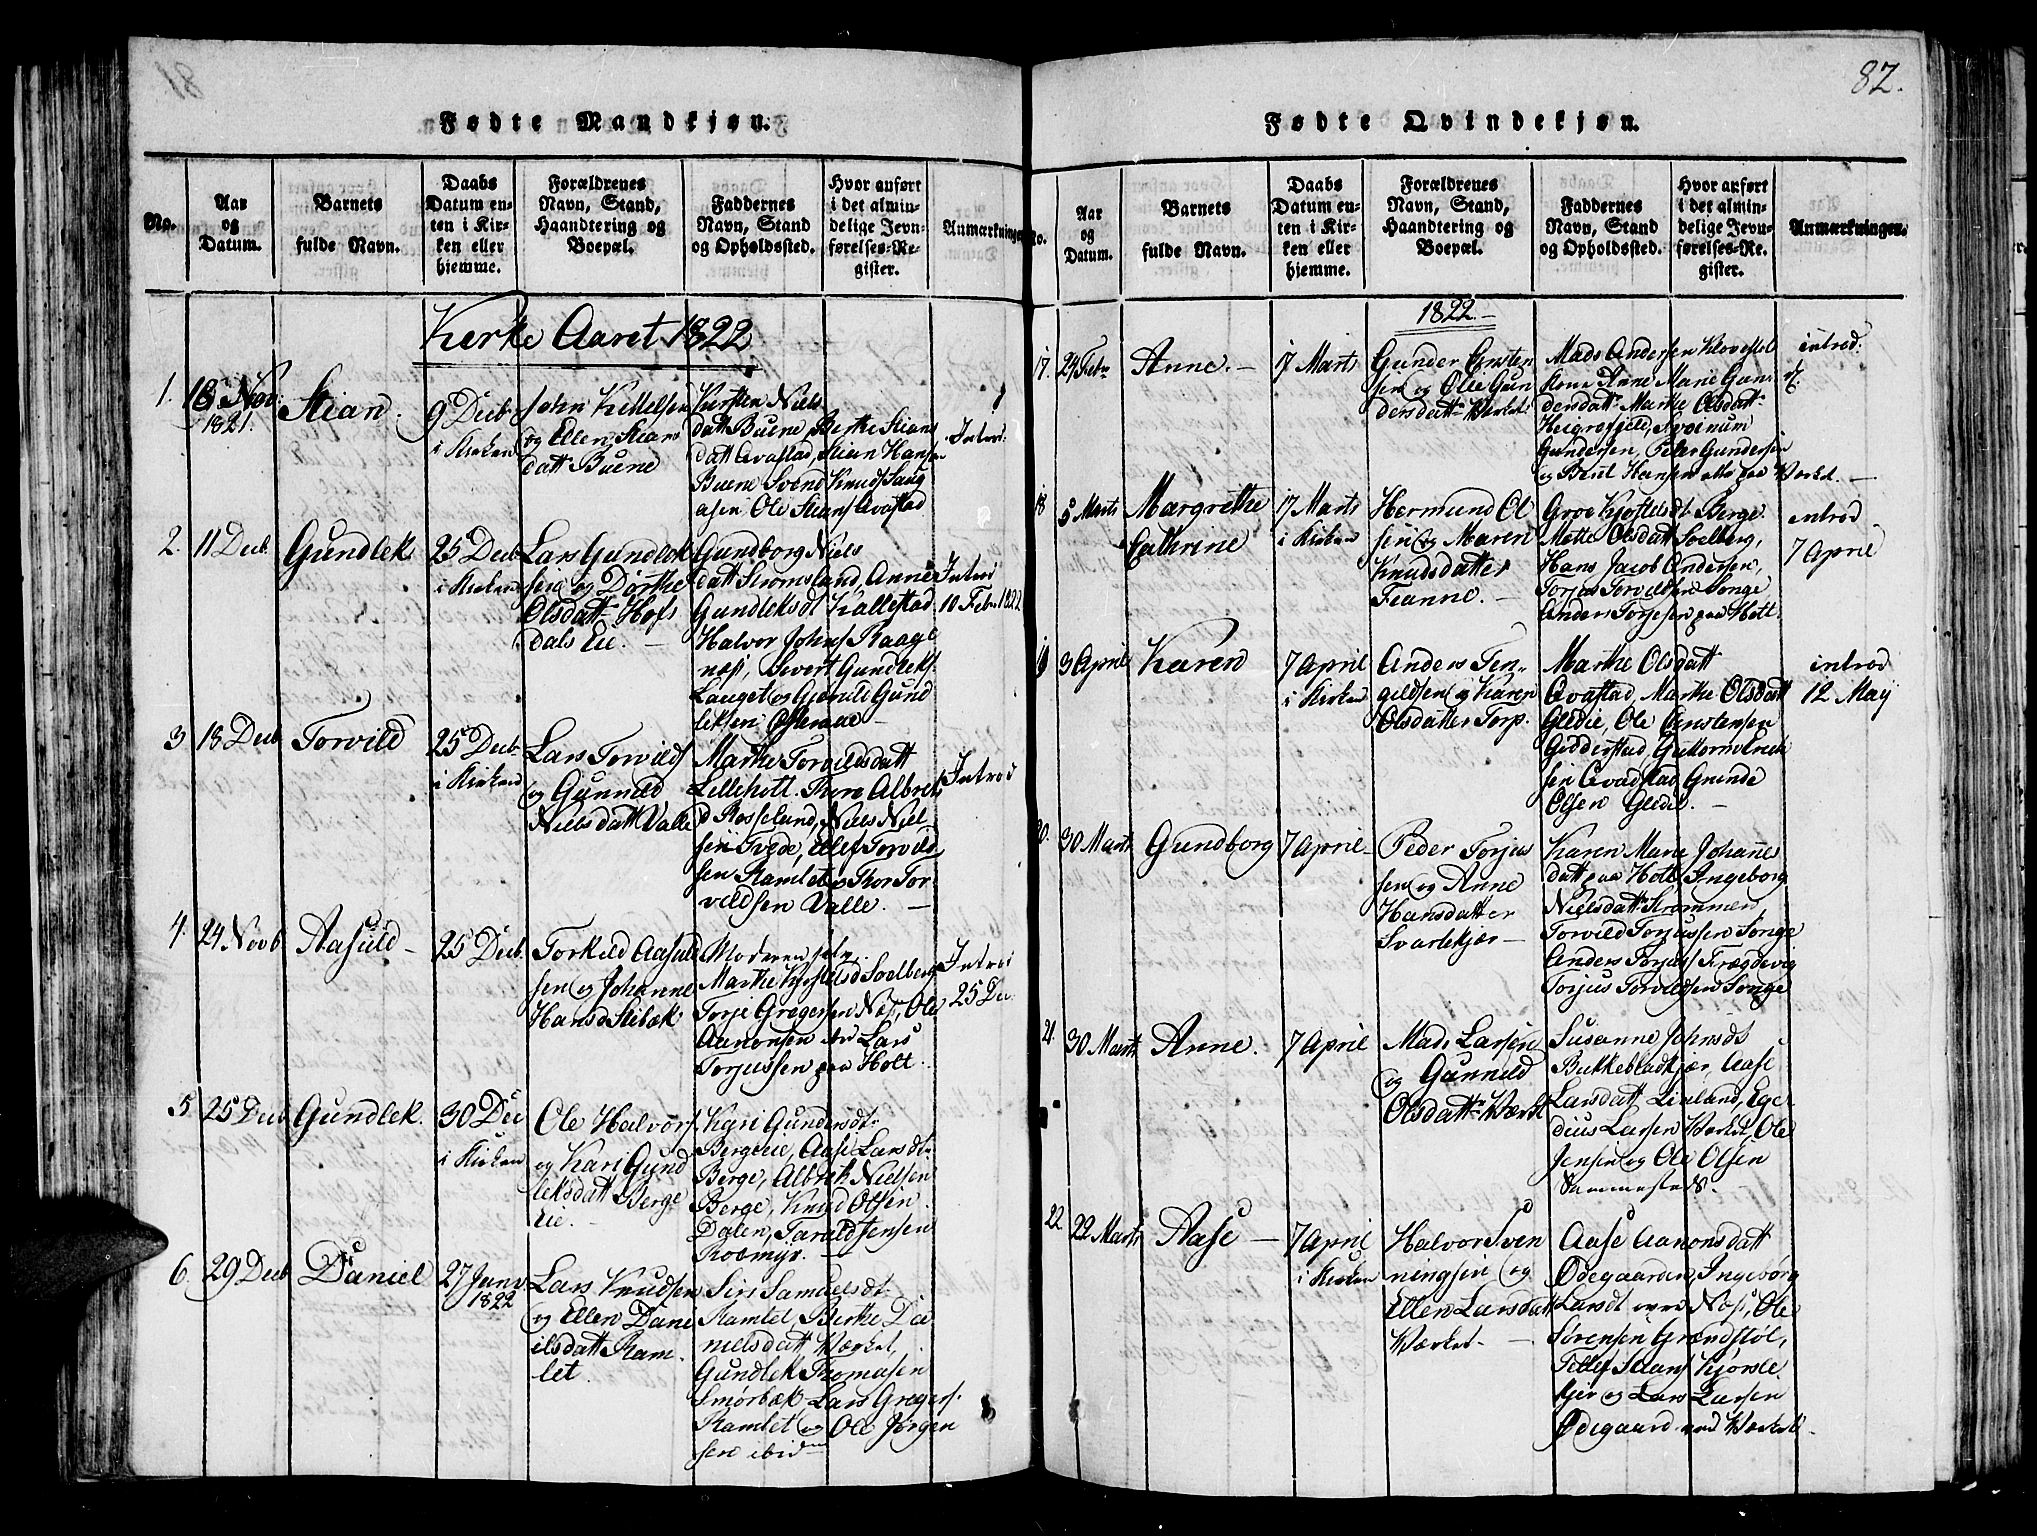 81
Fødte Mandkjøn.
No.
Aar og Datum.
Barnets fulde Navn.
Daabs Datum enten i Kirken eller hjemme.
Forældrenes Navn, Stand, Haandtering og Boepæl.
Faddernes Navn, Stand og Opholdssted.
Hvor anført i det almindelige Jevnførelses-Register.
Anmærkninger
Kerke Aaret 1822
1.
18 Nov:
1821.
Stian.
9 Decb
i Kirken
John Kittelsen
og Ellen Stians
datt Buene
Kirsten Niels
datt Buene, Berthe Stians
datt Qvastad, Stian Hansen
Buene Svend Knuds
Ole Stians Qvastad
Introd
2.
11 Decb
Gundlek
25 Decb
i Kirken
Lars Gundlek
sen og Dorthe
Olsdatt Hofs
dals Eie.
Gundborg Niels
datt Stromsland, Anne
Gundleksdt Kallestad
Halvor Johns Raage
næs, Sivert Gundleks
Lauget og Gjeruld Gund
leksen Osteraae
Introd
10 Febr 1822
3
18 Decb
Torvild
25 Decb
i Kirken
Lars Torvilds
og Gunnild
Nielsdatt Valle
Marthe Torvildsdatt
Lilleholt. Thore Albrek
d Rosseland, Niels Niel
sen Tvede, Ellef Torvild
sen Ramlet og Thor Tor
vildsen Valle.
Introd
4.
24 Novb
Aasuld
25 Decb.
Torkild Aasuld
sen og Johanne
Hansd Stibæk
Moderen selv.
Marthe Kjostelsd Soelberg
Torje Gregersen Næs, Ole
Aanonsen Lars
Torjussen paa Holt.
Introd
25 De
5
25 Decb
Gundlek.
30 Dec
i Kirken
Ole Halvors
og Kari Gund
leksdatt Berge
Eie.
Kyri Gundersdt
Bergeeie, Aase Larsdt
Berge, Albrek Nielsen
Berge, Knud Olsen
Dalen, Tarald Jensen
Robmyr.
6.
29 Decb
Daniel
27 Janv
1822
Lars Knudsen
og Ellen Dani
elsdatt Ram
let.
Siri Samuelsdt
Ramlet, Berthe Da
nielsdatt Værket,
Gundlek Thomasen
Smörbæk, Lars Gregers.
Ramlet og Ole Jørgen
sen ibid
82.
Fødte Qvindekjøn.
No.
Aar og Datum.
Barnets fulde Navn.
Daabs Datum enten i Kirken eller hjemme.
Forældrenes Navn, Stand, Haandtering og Boepæl.
Faddernes Navn, Stand og Opholdssted.
Hvor anført i det almindelige Jevnførelses-Register.
Anmærkninger.
1822
17.
24 Febr
Anne.
17 Marts
Gunder Ensten
sen og Olle Gun
dersdatt Værket
Mads Andersen Klovested
Kone Anne Marie Gun
dersdatt Marthe Olsdatt
Heigrefjeld, Svenum
Gundersen, Peter Gundersen
og Bent Hansen alle paa Værket.
introd:
18
5 Marts
Margrethe
Cathrine
17 Marts
i Kirken
Hermund Ol
sen og Maren
Knudsdatter
Fianne.
Groe Kjostelsdt Berge
Mette Olsdatt Soelberg,
Hans Jacob Andersen,
Torjus Torvildsen Songe
Anders Torjesen paa Holt.
introd
7 April
19
3 April
Karen
7 April
i Kirken
Anders Ten
gildsen og Karen
Olsdatter Torp.
Marthe Olsdatt
Qvastad, Marthe Olsdatt
Gledie, Ole Enstensen
Gidderstad, Guttorm Erik
sen Qvadstad Gunde
Olsen Gledie.
introd
12 May
20.
30 Marts
Gundborg
7 April
Peder Torjus
sen og Anne
Hansdatter
Svartekjær
Karen Marie Johanes
datt paa Holt Ingeborg
Nielsdatt Strömmen,
Torvild Torjussen Songe
Anders Torjus Frægdevig
Torjus Torvildsen Songe
21.
30 Marts
Anne.
7 April
Mads Larsen
og Gunnild
Olsdatt Værket
Susanne Johnsdt
Bukkebladkjær, Aase
Larsdatt Linland, Ege
dius Larsen Værket, Ole
Jensen og Ole Olsen
Sammesteds.
22
22 Marts
Aase
7 April
i Kirken
Halvor Sven
ningsen og
Ellen Larsdatt
Værket
Aase Aanonsdatt
Ødegaarden, Ingeborg
Larsdt Næs, Ole
Sörensen Grændstöl,
Tellef Stians Kjorsle
kjer og Lars Larsen
Ødegaard ved Værket.